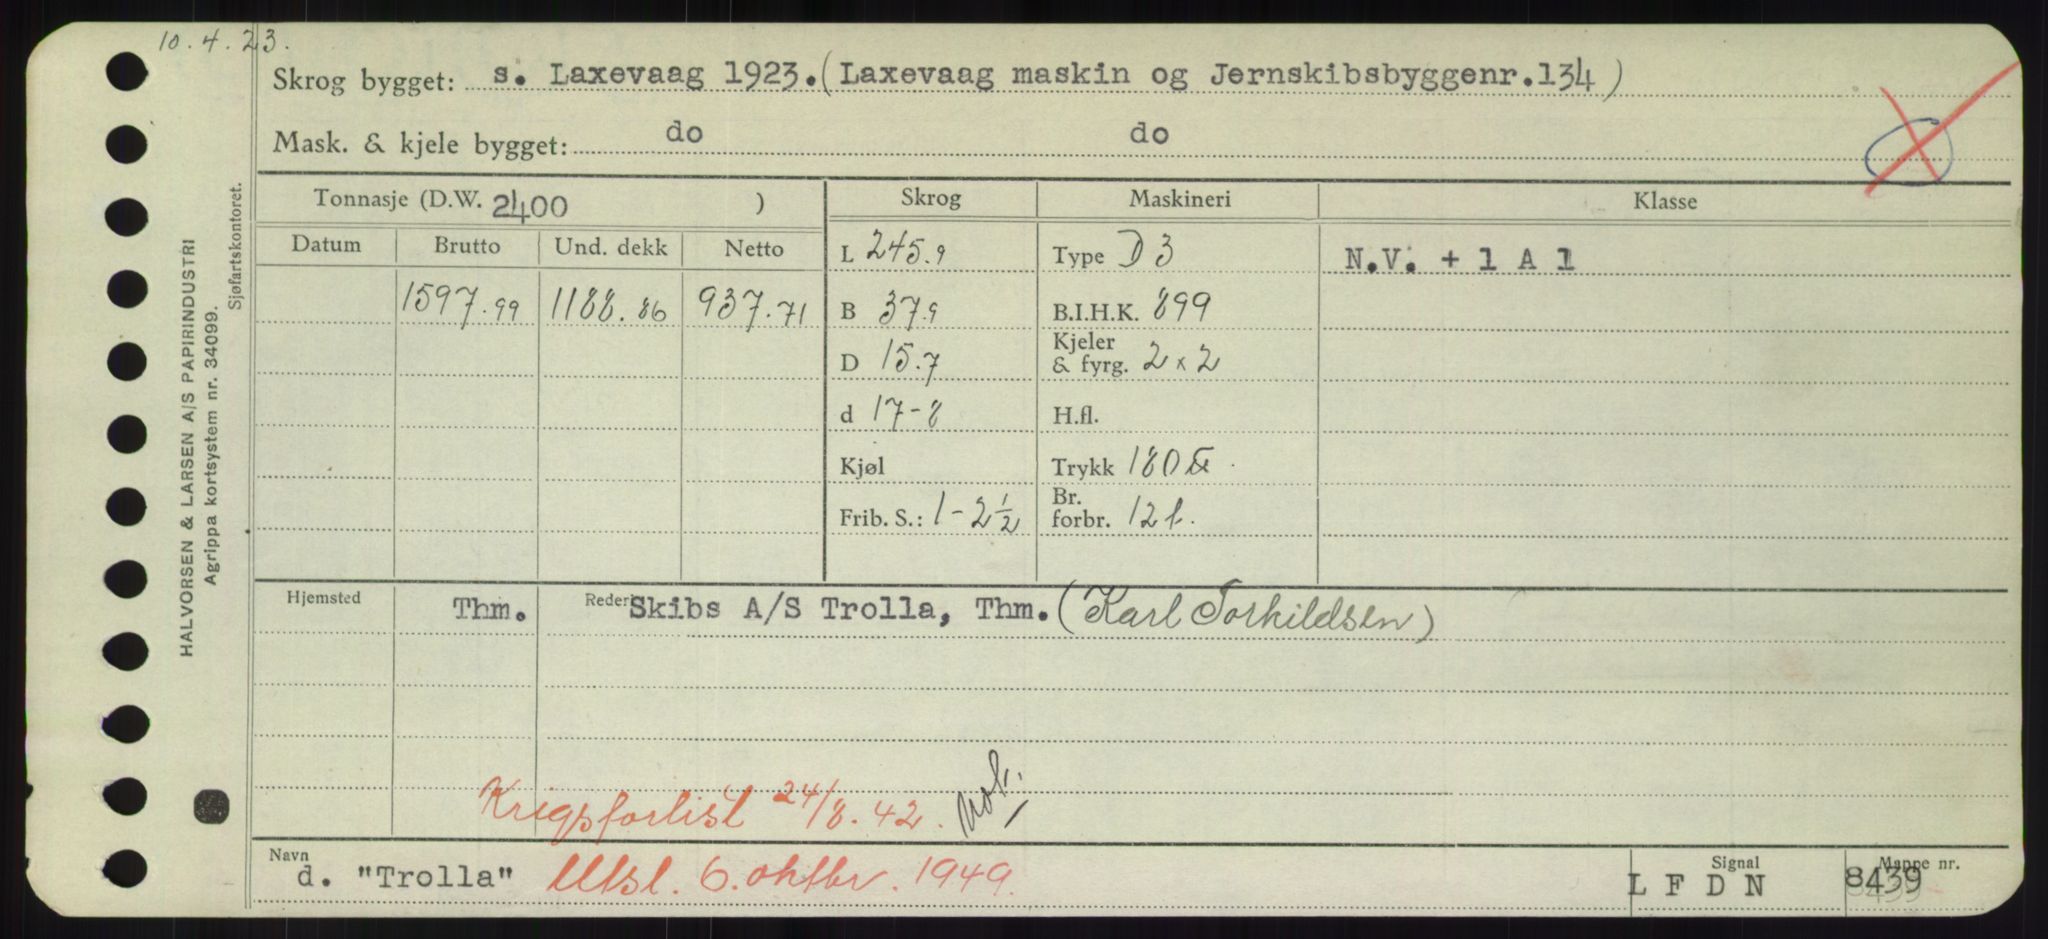 10.4.23.
Skrog bygget: s. Laxevaag 1923. (Laxevaag maskin og Jernskibsbyggenr.134)
Mask. & kjele bygget: do do
Tonnasje (D.W. 2400 )
Skrog
Maskineri
Klasse
Datum Brutto Und. dekk Netto
1597.99 1188.86 937.71
L 245.9
B 37.9
D 15.7
d 17-8
Kjøl
Frib. S.: 1-2½
Type D 3
B.I.H.K. 899
Kjeler
& fyrg. 2 x 2
H.fl.
Trykk 180
Br.
forbr. 12 t.
N.V. + 1 A 1
Hjemsted Thm. Rederi Skibs A/S Trolla, Thm. (Karl Torkildsen)
Krigsforlist 24/8.42. not.
Navn d. "Trolla" Utsl. 6. oktbr. 1949.
Signal L F D N
Mappe nr. 8439
HALVORSEN & LARSEN A/S PAPIRINDUSTRI
Agrippa kortsystem nr. 34099.
Sjøfartskontoret.